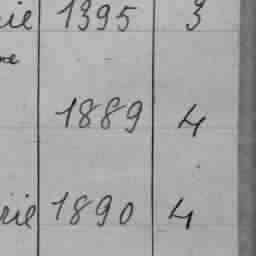 rie 1895 3
me
1889 4
rie 1890 4